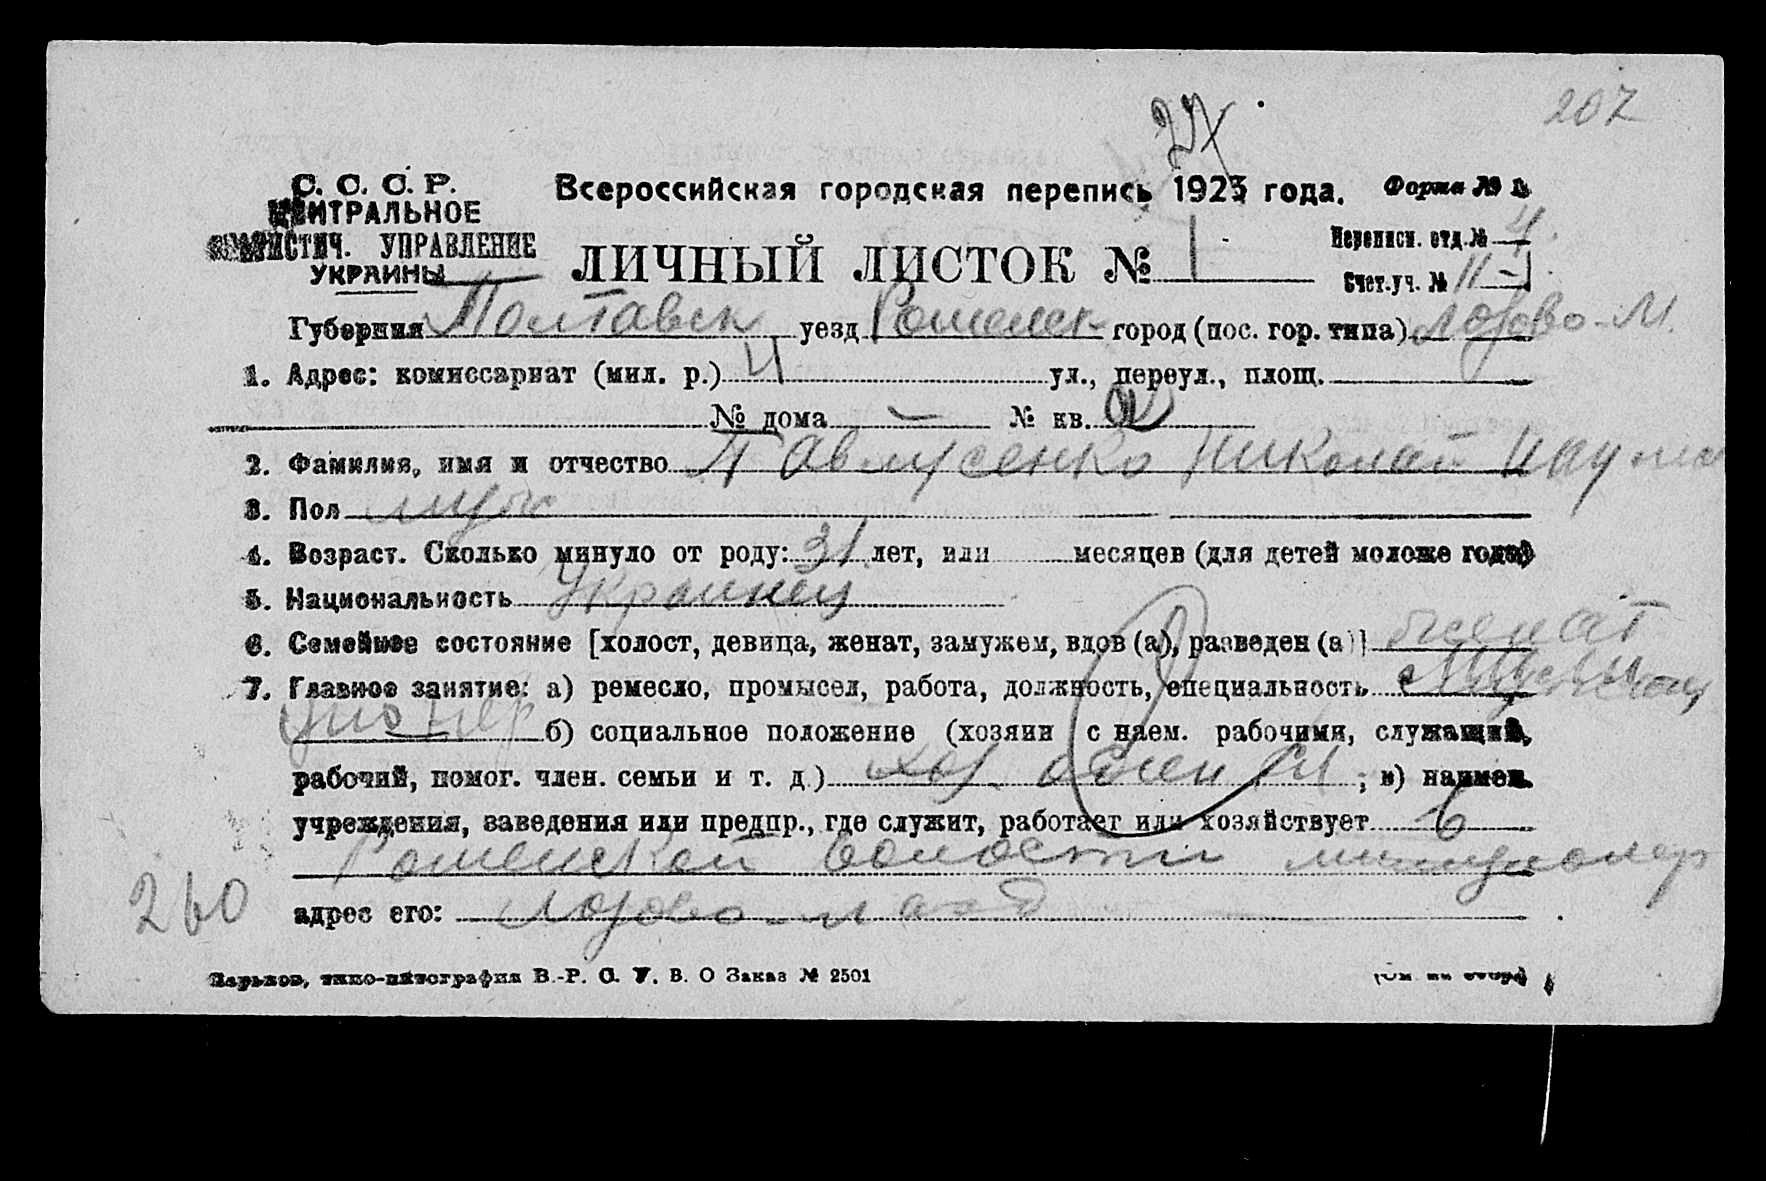 207
27
С. С. С. Р.
ЦЕНТРАЛЬНОЕ
СТАТИСТИЧ. УПРАВЛЕНИЕ
УКРАИНЫ
Всероссийская городская перепись 1923 года. Форма № 1.
ЛИЧНЫЙ ЛИСТОК № 1
Переписн. отд. № 4.
Счет. уч. № 11-
Губерния Полтавск уезд Роменск город (пос. гор. типа) Лозово-
1. Адрес: комиссариат (мил. р.) 4 ул., переул., площ.
№ дома — № кв.
2. Фамилия, имя и отчество Павлусенко Николай Наумо
3. Пол муж
4. Возраст. Сколько минуло от роду: 31 лет, или месяцев (для детей моложе года)
5. Национальность Украинец
6. Семейное состояние [холост, девица, женат, замужем, вдов (а), разведен (а)] женат
7. Главное занятие: а) ремесло, промысел, работа, должность, специальность
б) социальное положение (хозяин с наем. рабочими, служащий,
рабочий, помог. член. семьи и т. д.) ; в) наимен.
учреждения, заведения или предпр., где служит, работает или хозяйствует в
Роменской волости милиционер
260
адрес его: Лозово-
Харьков, типо-литография В.-Р. С. У. В. О Заказ № 2501
(См. на обор.)